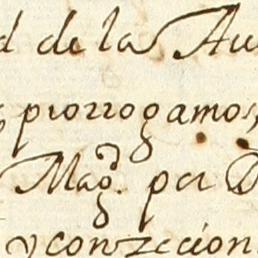 d de la Au
prorrogamos,
Magd. por D
y conzecion